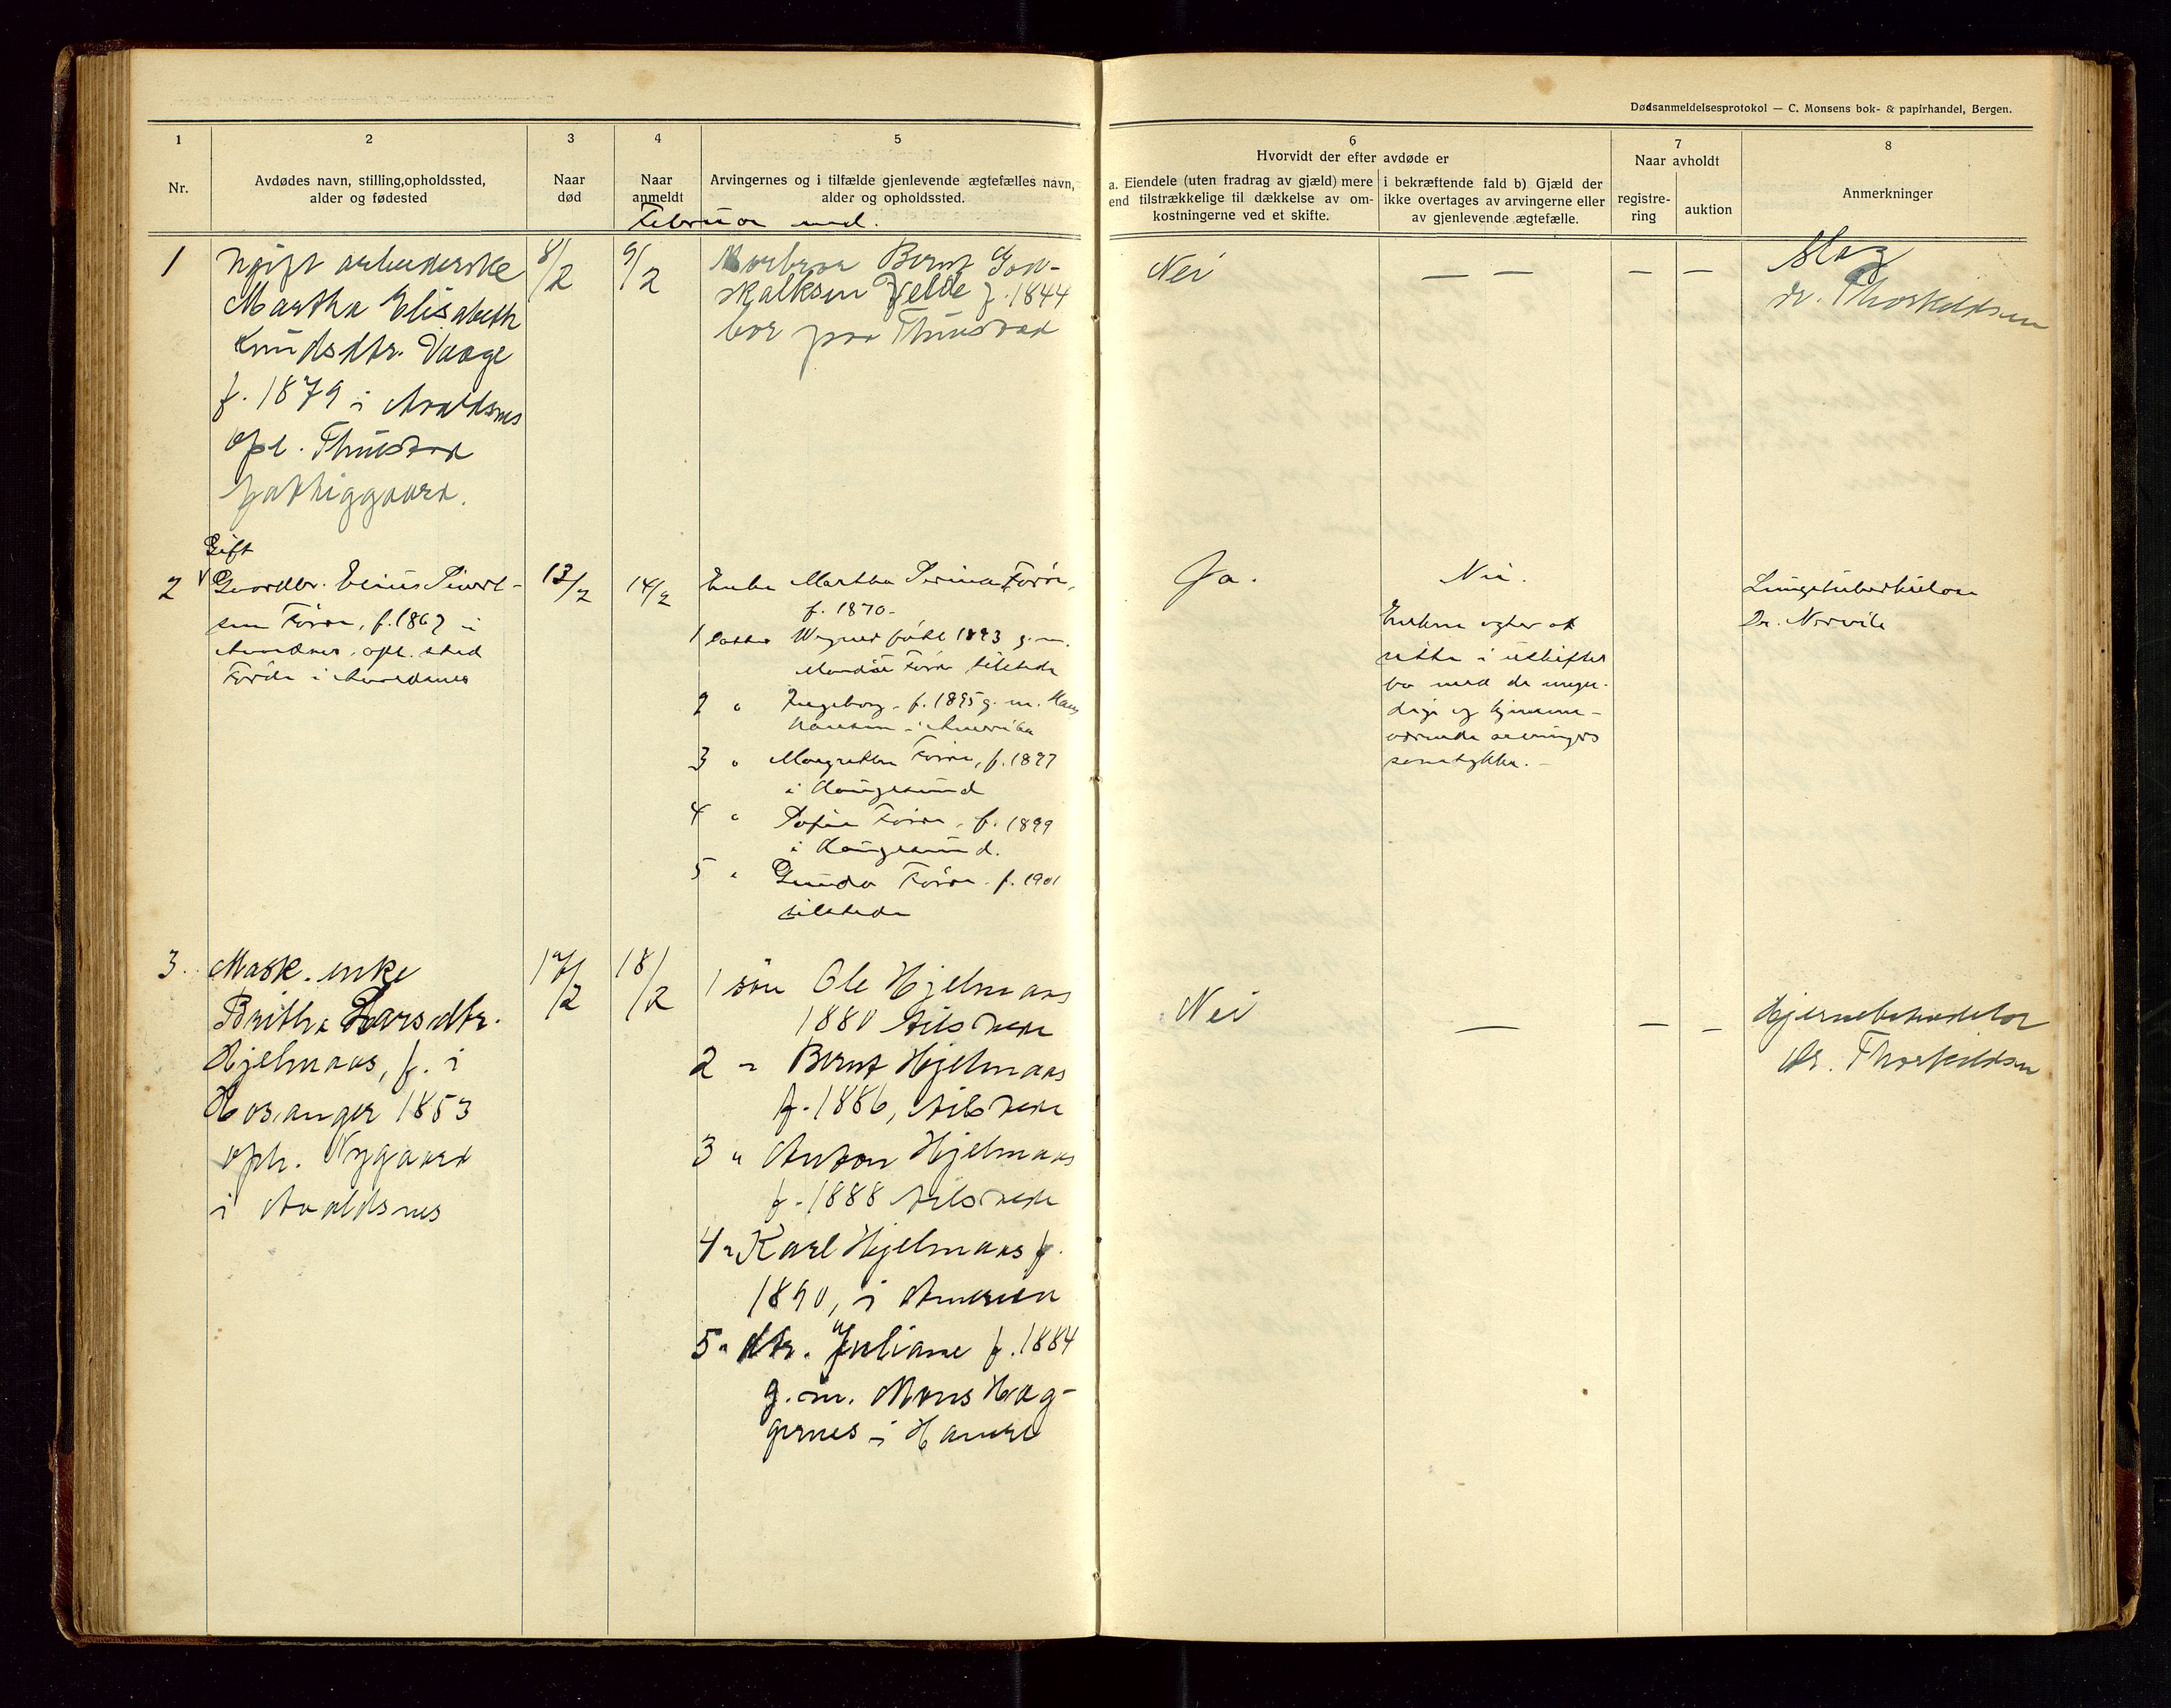 Dødsanmeldelsesprotokol — C. Monsens bok- & papirhandel, Bergen.
1
Nr.
2
Avdødes navn, stilling, opholdssted,
alder og fødested
3
Naar
død
4
Naar
anmeldt
5
Arvingernes og i tilfælde gjenlevende ægtefælles navn,
alder og opholdssted.
6
Hvorvidt der efter avdøde er
a. Eiendele (uten fradrag av gjæld) mere
end tilstrækkelige til dækkelse av om-
kostningerne ved et skifte.
i bekræftende fald b) Gjæld der
ikke overtages av arvingerne eller
av gjenlevende ægtefælle.
7
Naar avholdt
registre-
ring
auktion
8
Anmerkninger
Februar md.
1
Ugift arbeiderske
Martha Elisabeth
Knudsdtr. Vaage
f. 1879 i Avaldsnes
opl. Thuestad
fattiggaard.
8/2
9/2
Morbror Bernt God-
skalksen Fjelde f. 1844
bor paa Thuestad
Nei
— —
— —
Slag
dr. Thorkildsen
2
Gift
Gaardbr. Elius Sivert-
sen Førre, f. 1867 i
Avaldsnes, opl. sted
Førde i Avaldsnes
13/2
14/2
Enke Martha Serina Førre,
f. 1870-
1 Datter født 1893 g. m.
Førre tilstede
2 " Ingeborg - f. 1895 g. m. Hans
Hansen i Amerika
3 " Margrethe Førre, f. 1897
i Haugesund
4 " Sofie Førre, f. 1899
i Haugesund.
5 " Gunda Førre - f. 1901
tilstede
Ja.
Nei.
Enken agter at
sitte i uskiftet
bo med de myn-
dige og hjemme-
værende arvingers
samtykke. -
Lungetuberkulose
Dr.
3.
Mask. enke
Britha Larsdtr.
Hjelmaas, f. i
Hosanger 1853
oph. Nygaard
i Avaldsnes
17/2
18/2
1 søn Ole Hjelmaas
1880 tilstede
2 " Bernt Hjelmaas
f. 1886, tilstede
3 " Anton Hjelmaas
f. 1888 tilstede
4 " Karl Hjelmaas f.
1890, i Amerika
5 " dtr. Juliane f. 1884
g. m. Mons Hag-
gernes i Hamre
Nei
—
— —
dr. Thorkildsen